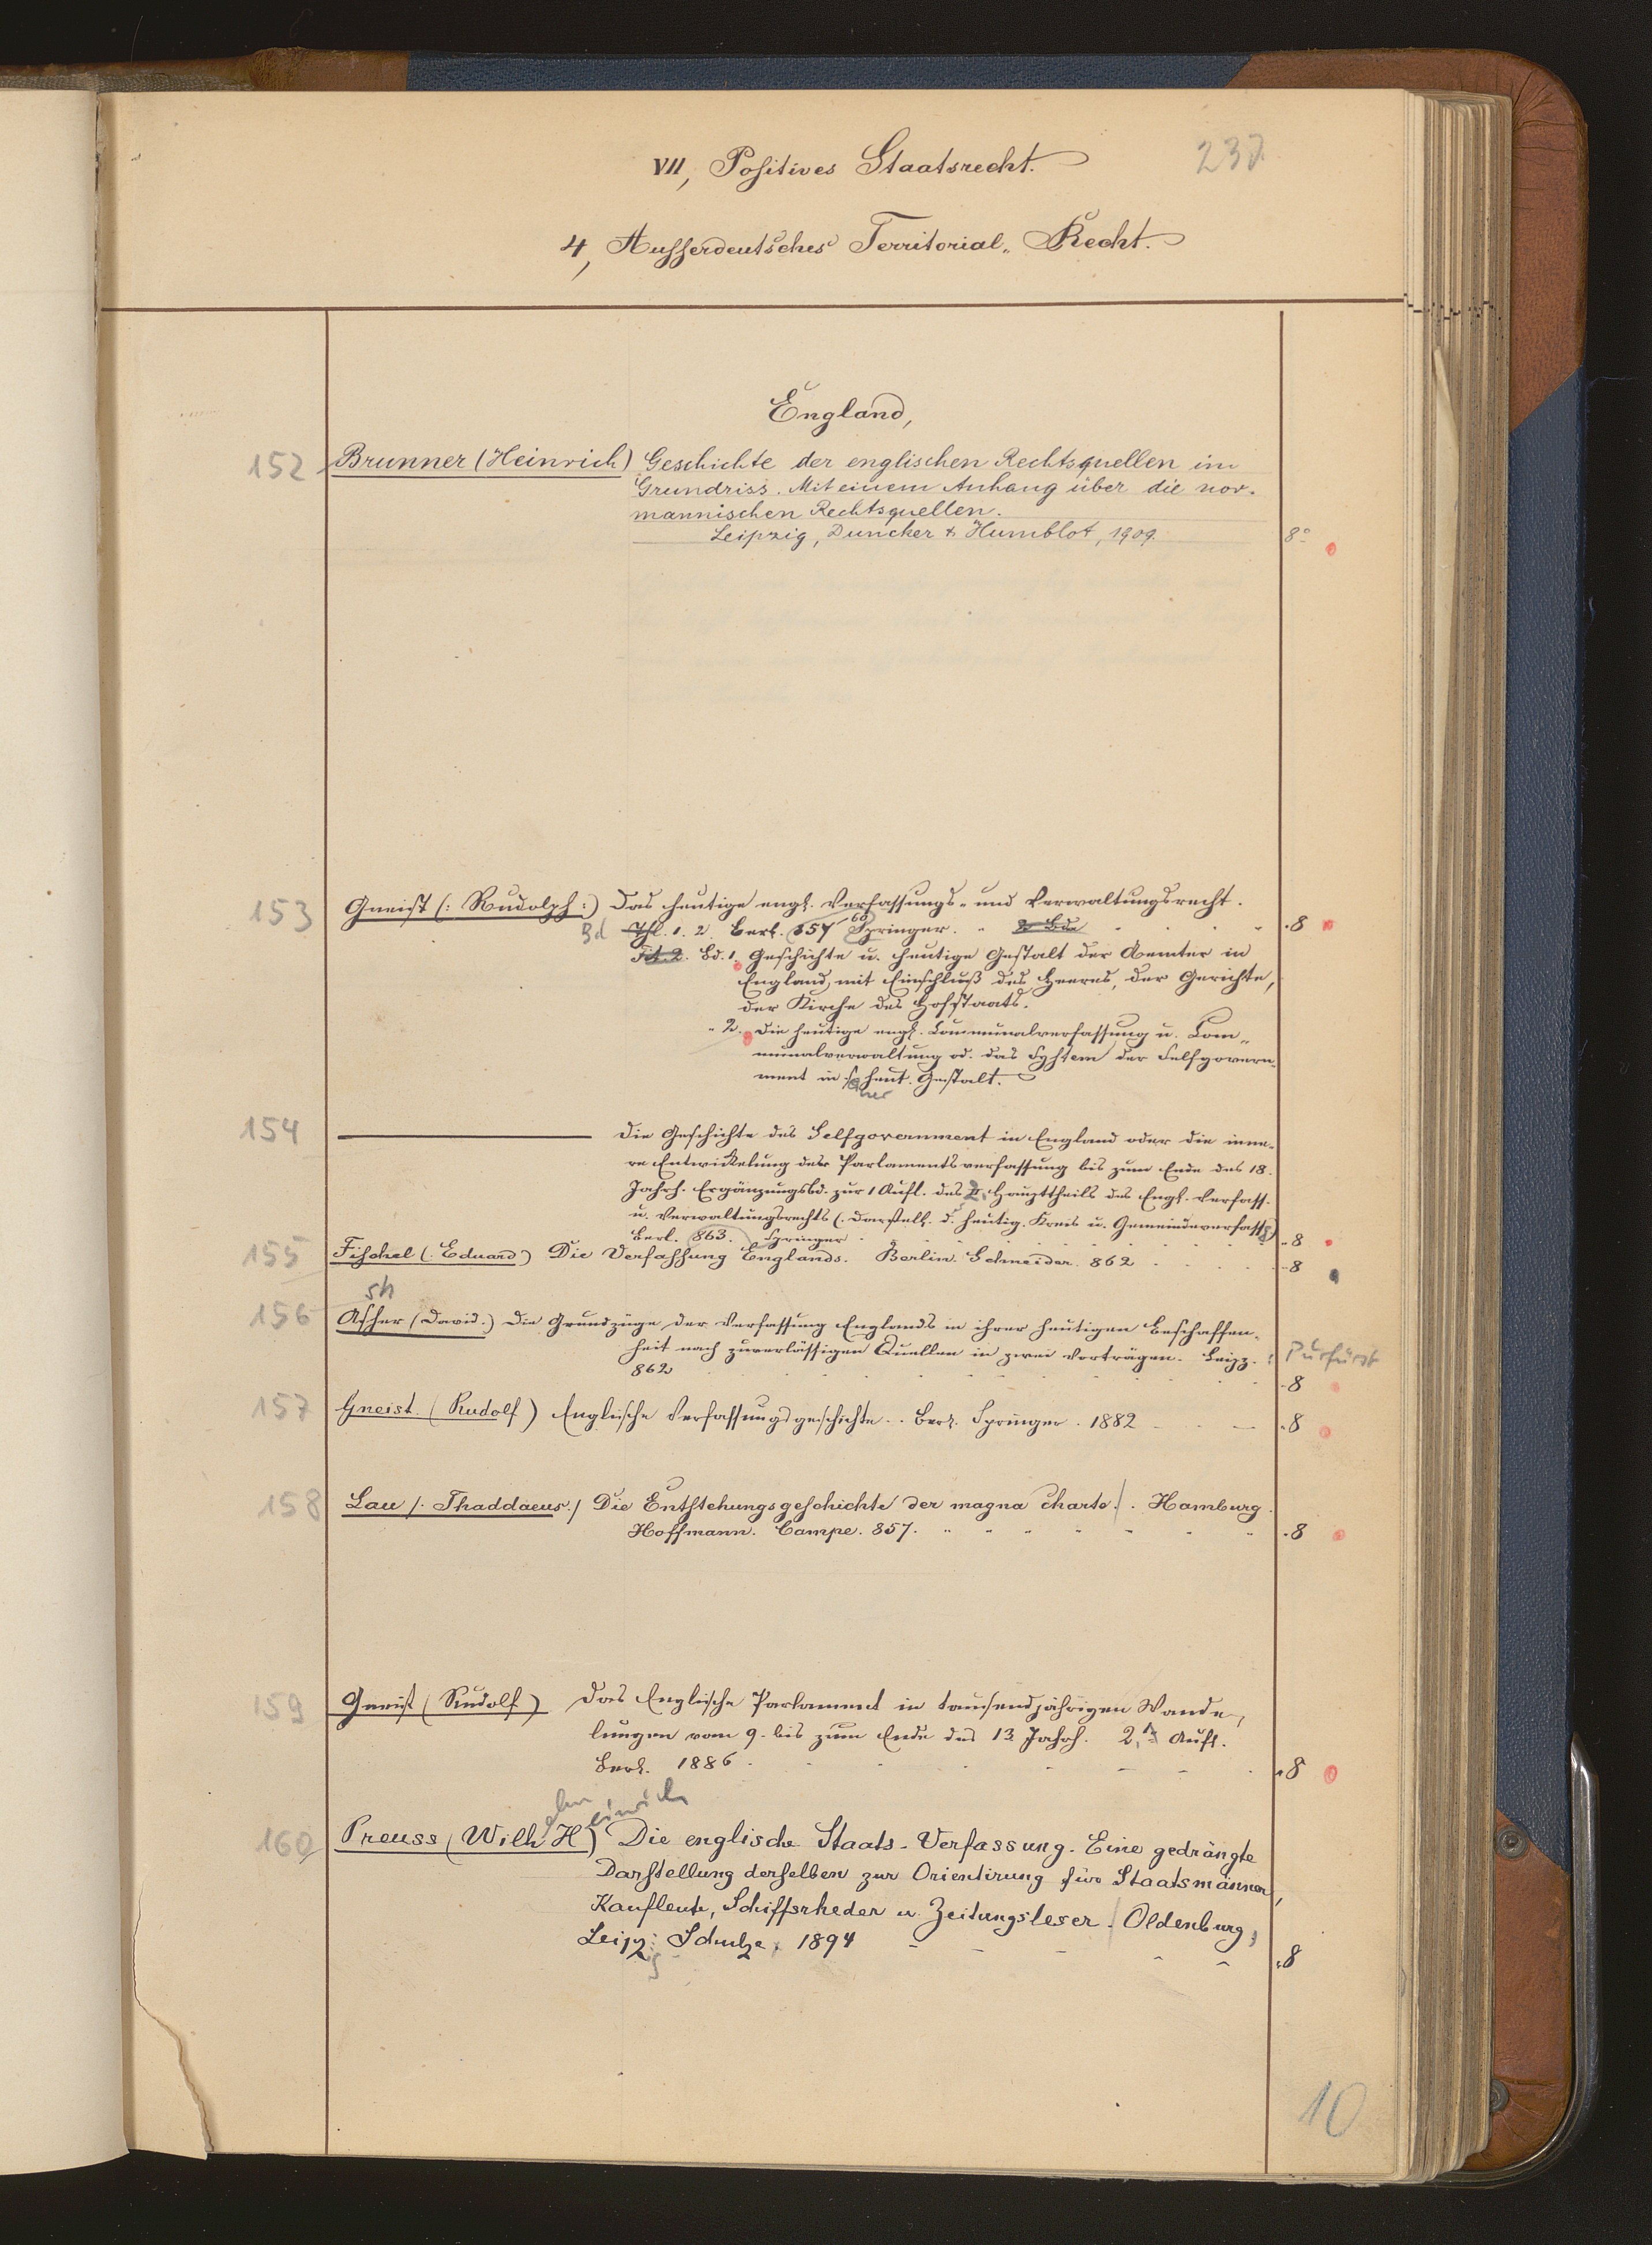 VII, Positives Staatsrecht.
237.
4, Ausserdeutsches Territorial-Recht.
England,
152 Brunner (Heinrich) Geschichte der englischen Rechtsquellen im
Grundriss. Mit einem Anhang über die nor-
mannischen Rechtsquellen.
Leipzig, Duncker & Humblot, 1909. 8°
153 Gneist (: Rudolph :) Das heutige engl. Verfassungs- und Verwaltungsrecht.
Bd Thl. 1. 2. Berl. 857 60 Springer. 2 Bde 8
Tit. 2. Bd. 1. Geschichte u. heutige Gestalt der Aemter in
England, mit Einschluß des Heeres, der Gerichte,
der Kirche des Hofstaats.
" 2. Die heutige engl. Communalverfassung u. Com-
munalverwaltung od. das System der Selfgovern-
ment in sr heut. Gestalt.
154 Die Geschichte des Selfgovernment in England oder die inne-
re Entwickelung der Parlamentsverfassung bis zum Ende des 18.
Jahrh. Ergänzungsbd. zur 1 Aufl. des 2. Haupttheils des Engl. Verfass.
u. Verwaltungsrechts (. Darstell. d. heutig. Kreis u. Gemeindeverfassg)
Berl. 863. Springer 8
155 Fischel (. Eduard) Die Verfassung Englands. Berlin. Schneider. 862 8
sh
156 Asher (David.) Die Grundzüge der Verfassung Englands in ihrer heutigen Beschaffen-
heit nach zuverlässigen Quellen in zwei Vorträgen. Leipz. : Pürfürst
862 8
157 Gneist. (Rudolf) Englische Verfassungsgeschichte. Berl. Springer. 1882 8
158 Lau /. Thaddaeus./ Die Entstehungsgeschichte der magna Charta. Hamburg.
Hoffmann. Campe. 857. 8
159 Gneist (Rudolf) Das Englische Parlament in tausendjährigen Wande-
lungen vom 9. bis zum Ende des 13. Jahrh. 2. Aufl.
Berl. 1886. 8
elm einrich
160 Preuss (Wilh H) Die englische Staats-Verfassung. Eine gedrängte
Darstellung derselben zur Orientirung für Staatsmänner,
Kaufleute, Schiffsrheder u. Zeitungsleser. Oldenburg,
Leipz: Schulze, 1894 8
10